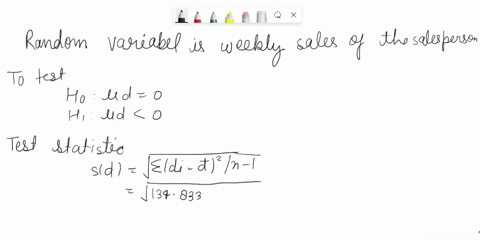 Random variabel is weekly sales of the salesperson
To test
H₀ : μd = 0
H₁ : μd < 0
Test statistic
s(d) = √Σ(di - d̄)²/n-1
= √134.833